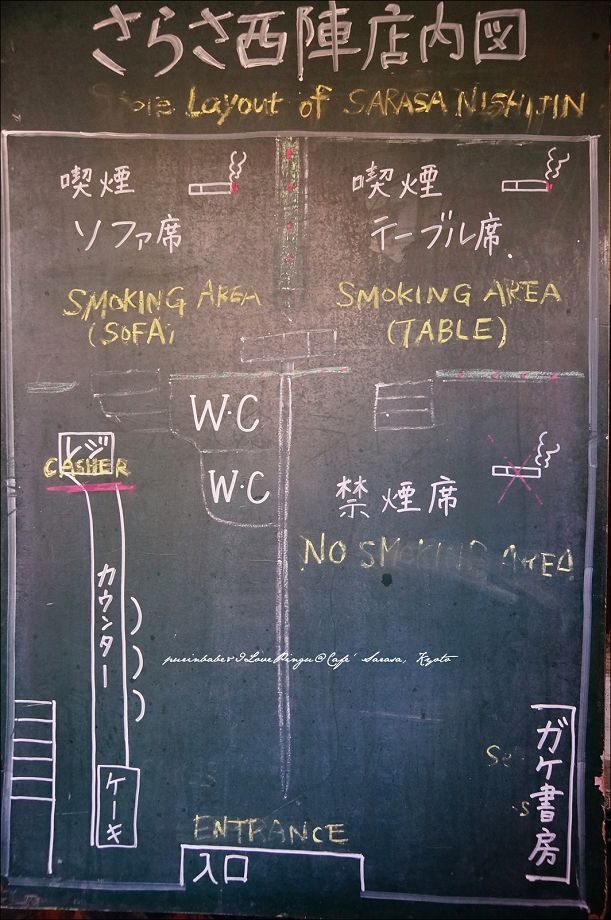 さらさ西陣店内図
Store Layout of SARASA NISHIJIN
喫煙
ソファ席
SMOKING AREA
(SOFA)
喫煙
テーブル席
SMOKING AREA
(TABLE)
W·C
W·C
レジ
CASHER
禁煙席
NO SMOKING AREA
カウンター
purinbabe & I Love Pingu @ Café Sarasa, Kyoto
ケーキ
ガケ書房
ENTRANCE
入口